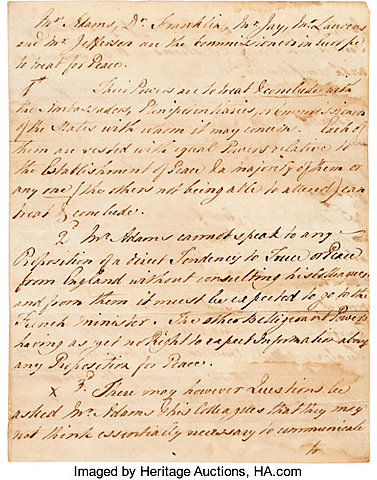 Mr. Adams, Dr. Franklin, Mr. Jay, Mr. Laurens
and Mr. Jefferson are the Commissioners in Europe
to treat for Peace.
1st Their Powers are to treat & conclude with
the Ambassadors, Plenipotentiaries, or Commissioners
of the States with whom it may concern. Each of
them are vested with equal Powers relative to
the Establishment of Peace & a majority of them or
any one (the others not being able to attend) can
treat & conclude.
2d Mr. Adams cannot speak to any
Proposition of a direct Tendency to Truce or Peace
from England without consulting his Colleagues
and from them it must be expected to go to the
French minister. The other Belligerant Powers
having as yet no Right to expect Information about
any Proposition for Peace.
x 3d There may however Questions be
asked Mr. Adams & his Colleagues that they may
not think essentially necessary to communicate
to
Imaged by Heritage Auctions, HA.com